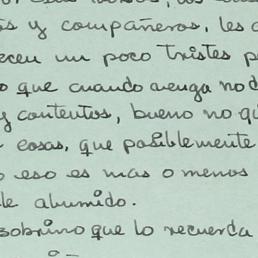 s y compañeros, les d
ecen un poco tristes p
o que cuando venga no d
y contentos, bueno no qu
cosas, que posiblemente
o eso es mas o menos
le aburrido.
sobrino que lo recuerda